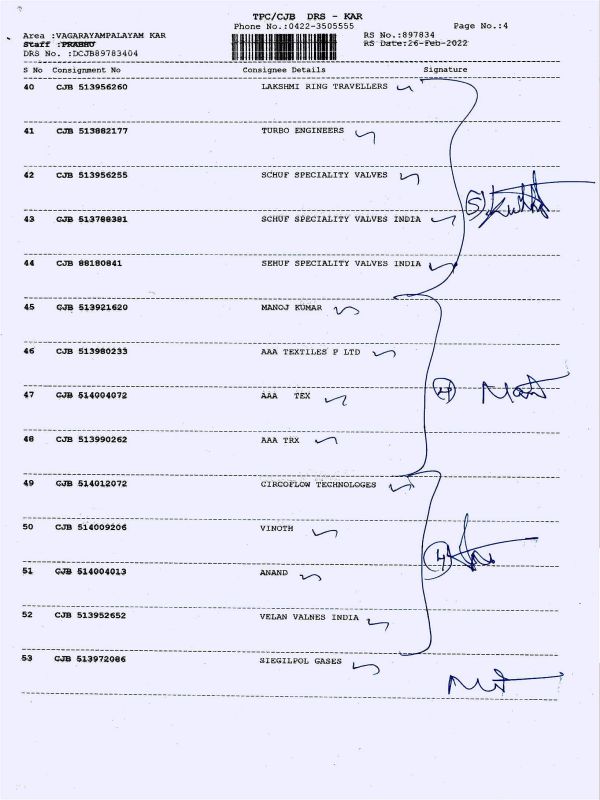 TPC/CJB DRS - KAR
Phone No.:0422-3505555 Page No.:4
Area :VAGARAYAMPALAYAM KAR RS No.:897834
Staff :PRABHU RS Date:26-Feb-2022
DRS No. :DCJB89783404
S No Consignment No Consignee Details Signature
40 CJB 513956260 LAKSHMI RING TRAVELLERS
41 CJB 513882177 TURBO ENGINEERS
42 CJB 513956255 SCHUF SPECIALITY VALVES
5
43 CJB 513788381 SCHUF SPECIALITY VALVES INDIA
44 CJB 88180841 SEHUF SPECIALITY VALVES INDIA
45 CJB 513921620 MANOJ KUMAR
46 CJB 513980233 AAA TEXTILES P LTD
47 CJB 514004072 AAA TEX 4
48 CJB 513990262 AAA TRX
49 CJB 514012072 CIRCOFLOW TECHNOLOGES
50 CJB 514009206 VINOTH
4
51 CJB 514004013 ANAND
52 CJB 513952652 VELAN VALNES INDIA
53 CJB 513972086 SIEGILPOL GASES